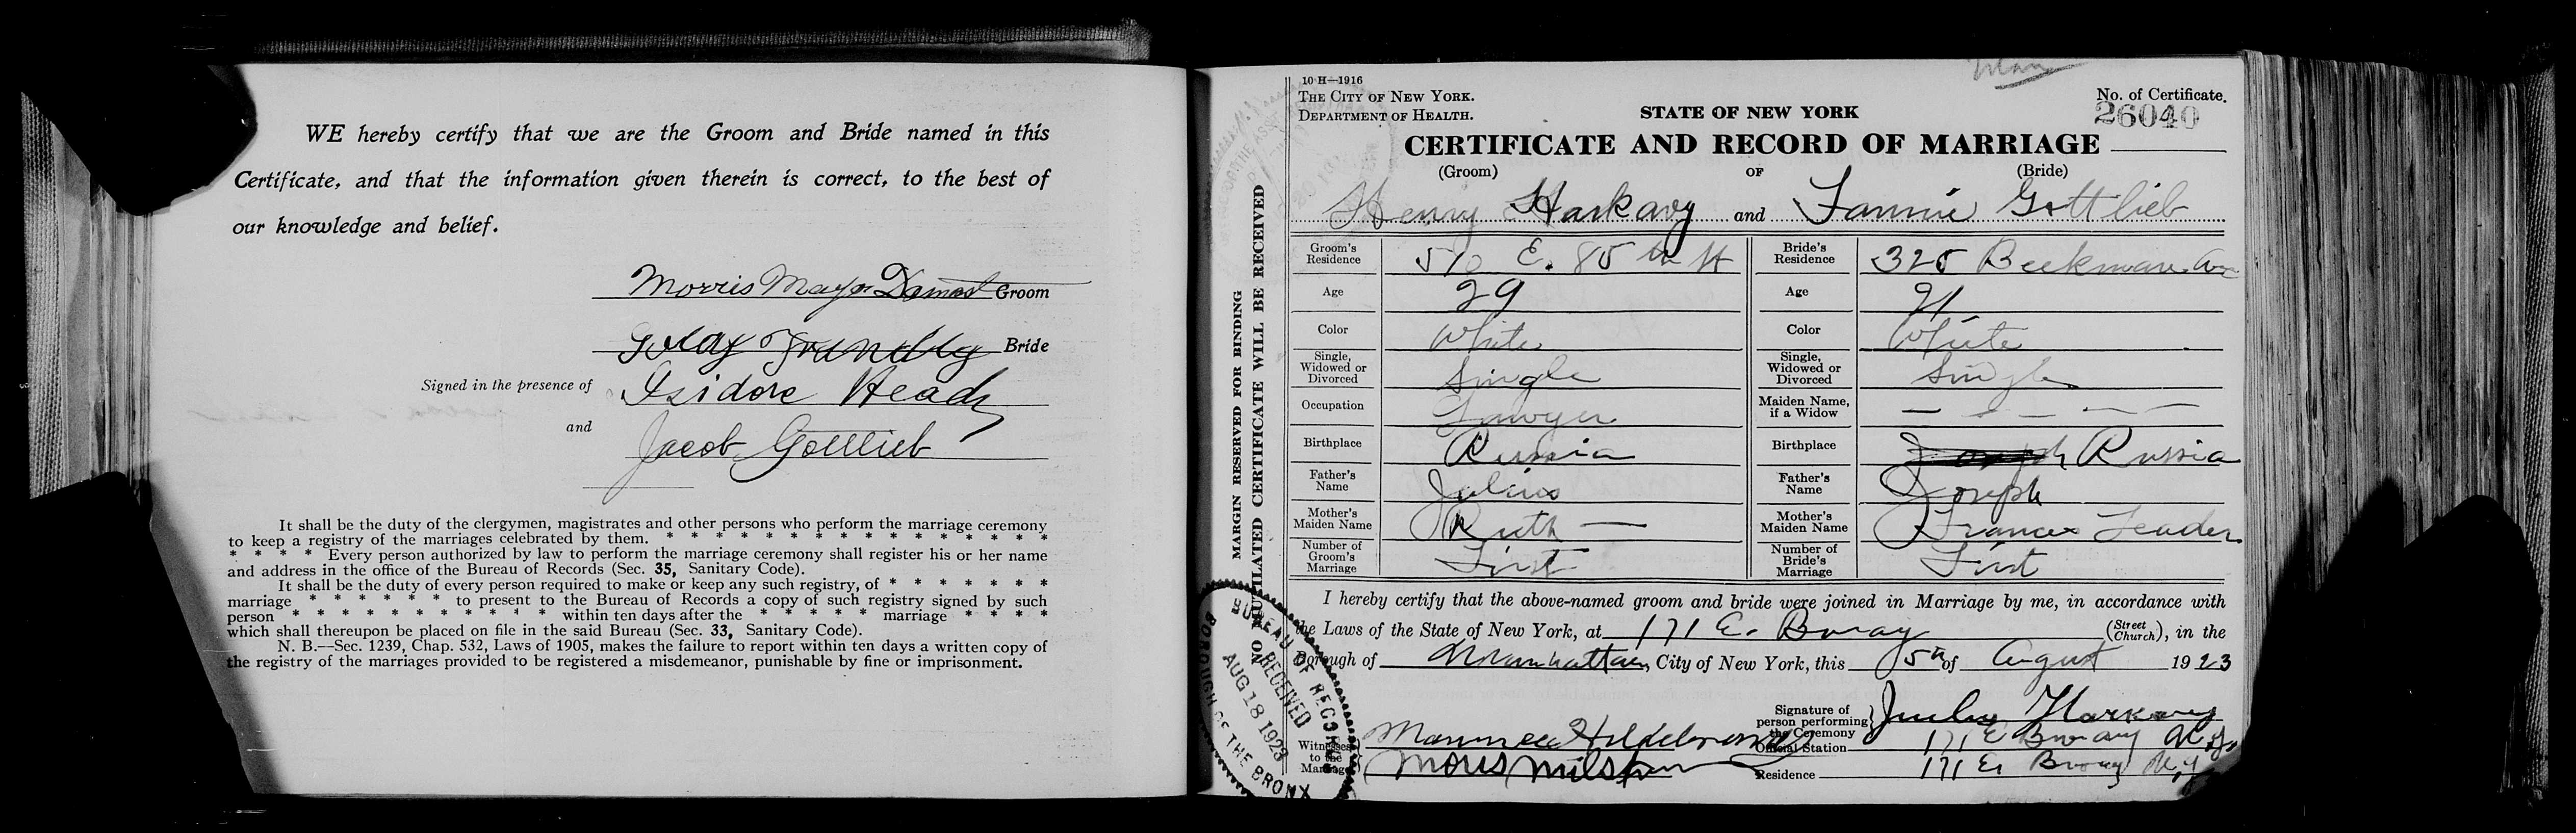 WE hereby certify that we are the Groom and Bride named in this
Certificate, and that the information given therein is correct, to the best of
our knowledge and belief.
Morris Mayer Groom
Bride
Signed in the presence of Isidore Heady
and
Jacob Gottlieb
It shall be the duty of the clergymen, magistrates and other persons who perform the marriage ceremony
to keep a registry of the marriages celebrated by them. * * * * * * * * * * * * * * *
* * * * Every person authorized by law to perform the marriage ceremony shall register his or her name
and address in the office of the Bureau of Records (Sec. 35, Sanitary Code).
It shall be the duty of every person required to make or keep any such registry, of * * * * * * *
marriage * * * * * * to present to the Bureau of Records a copy of such registry signed by such
person * * * * * * * * * * * within ten days after the * * * * * marriage * * * *
which shall thereupon be placed on file in the said Bureau (Sec. 33, Sanitary Code).
N. B.—Sec. 1239, Chap. 532, Laws of 1905, makes the failure to report within ten days a written copy of
the registry of the marriages provided to be registered a misdemeanor, punishable by fine or imprisonment.
MARGIN RESERVED FOR BINDING
NO MUTILATED CERTIFICATE WILL BE RECEIVED
10 H—1916
THE CITY OF NEW YORK.
DEPARTMENT OF HEALTH.
STATE OF NEW YORK
No. of Certificate.
26040
CERTIFICATE AND RECORD OF MARRIAGE
(Groom) OF (Bride)
Henry Harkavy and Fannie Gottlieb
Groom's Residence 510 E. 85 th St Bride's Residence 325 Beekman Ave
Age 29 Age 21
Color White Color White
Single, Widowed or Divorced Single Single, Widowed or Divorced Single
Occupation Lawyer Maiden Name, if a Widow — — — — —
Birthplace Russia Birthplace Joseph Russia
Father's Name Julius Father's Name Joseph
Mother's Maiden Name Ruth — Mother's Maiden Name Frances Leader
Number of Groom's Marriage First Number of Bride's Marriage First
I hereby certify that the above-named groom and bride were joined in Marriage by me, in accordance with
the Laws of the State of New York, at 171 E. Bway (Street Church), in the
Borough of Manhattan, City of New York, this 5th of August 1923
Signature of person performing the Ceremony Julius Harkavy
Witnesses to the Marriage
Official Station 171 E Broadway N.Y.
Morris Milstein
Residence 171 E. Bway N.Y
BUREAU OF RECORDS
RECEIVED
AUG 18 1923
BOROUGH OF THE BRONX